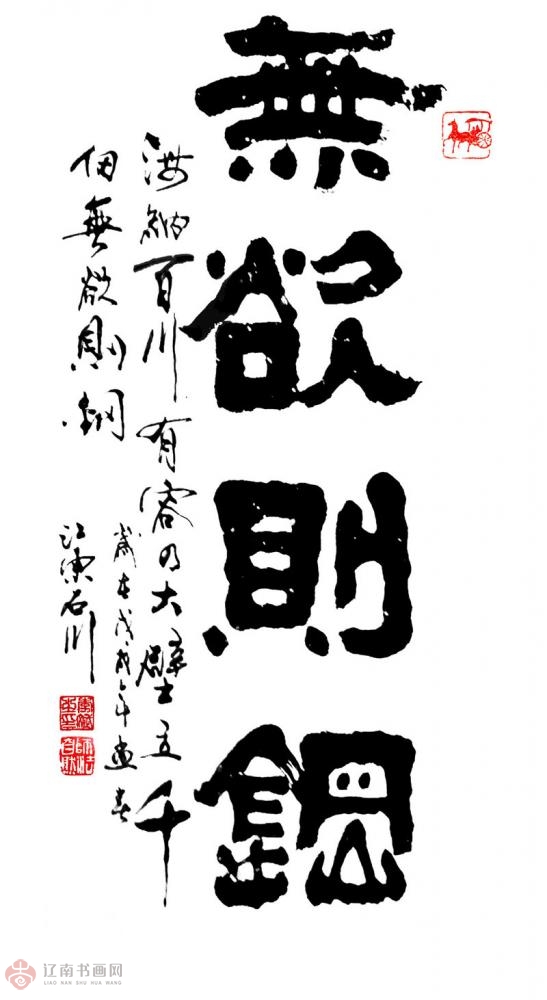 無欲則鋼
海納百川有容乃大壁立千
仞無欲則鋼
歲在戊戌年孟春
江濱石川
辽南书画网
LIAO NAN SHU HUA WANG